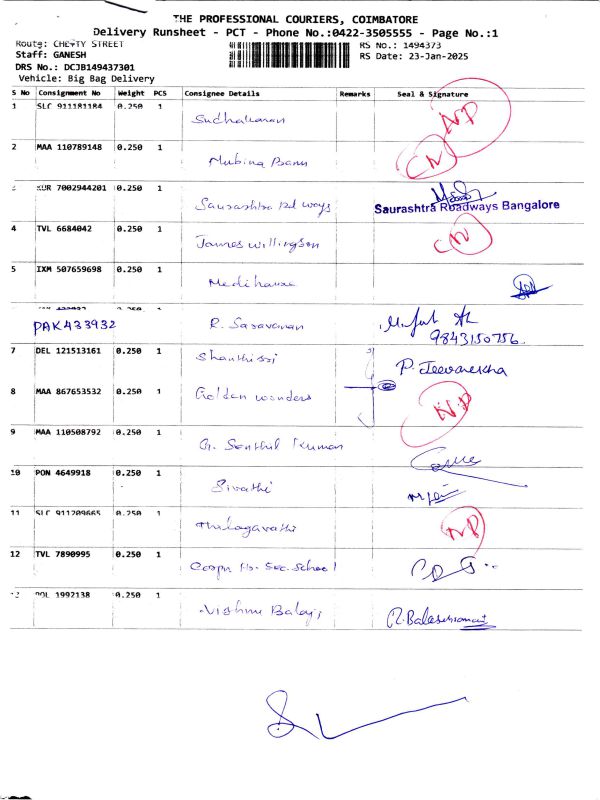 THE PROFESSIONAL COURIERS, COIMBATORE
Delivery Runsheet - PCT - Phone No.:0422-3505555 - Page No.:1
Route: CHETTY STREET RS No.: 1494373
Staff: GANESH RS Date: 23-Jan-2025
DRS No.: DCJB149437301
Vehicle: Big Bag Delivery
S No Consignment No Weight PCS Consignee Details Remarks Seal & Signature
1 SLC 911181184 0.250 1 Sudhakaran NP
2 MAA 110789148 0.250 1 Mubina Banu CN
3 KUR 7002944201 0.250 1 Saurashtra Rd ways Saurashtra Roadways Bangalore
4 TVL 6684042 0.250 1 James Willingson CN
5 IXM 507659698 0.250 1
PAK433932 R. Saravanan
9843150756
7 DEL 121513161 0.250 1 P. Jeevarekha
8 MAA 867653532 0.250 1 Golden wonders NP
9 MAA 110508792 0.250 1 G. Senthil Kumar
10 PON 4649918 0.250 1
11 SLC 911209665 0.250 1 Thilagavathi NP
12 TVL 7890995 0.250 1 Coopn Hr. Sec. School
POL 1992138 0.250 1 Vishnu Balaji